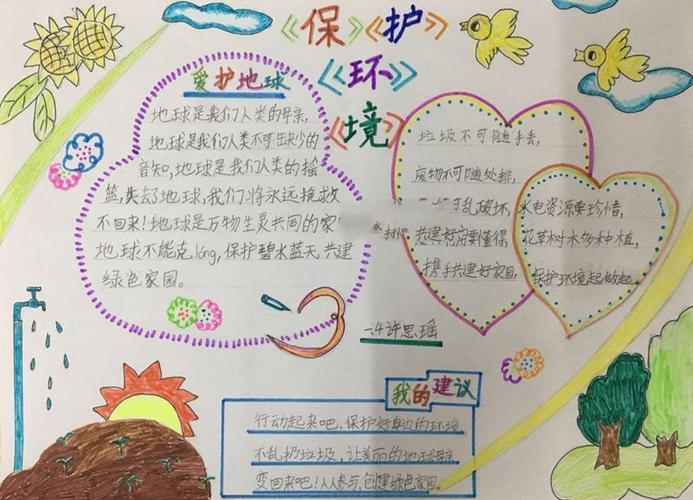 《保》《护》
《环》
《境》
爱护地球
地球是我们人类的母亲,
地球是我们人类不可缺少的
音知,地球是我们人类的摇
篮,失去地球,我们将永远挽救
不回来!地球是万物生灵共同的家
地球不能克lóng,保护碧水蓝天 共建
绿色家园。
垃圾不可随手丢,
废物不可随处排,
乱破坏,
共建好
携手共建好家园,
水电资源要珍惜,
花草树木多种植,
保护环境起做起。
一4许思瑶
我的建议
行动起来吧,保护好身边的环境
不乱扔垃圾,让美丽的地球
变回来吧!人人参与,创建绿色家园。